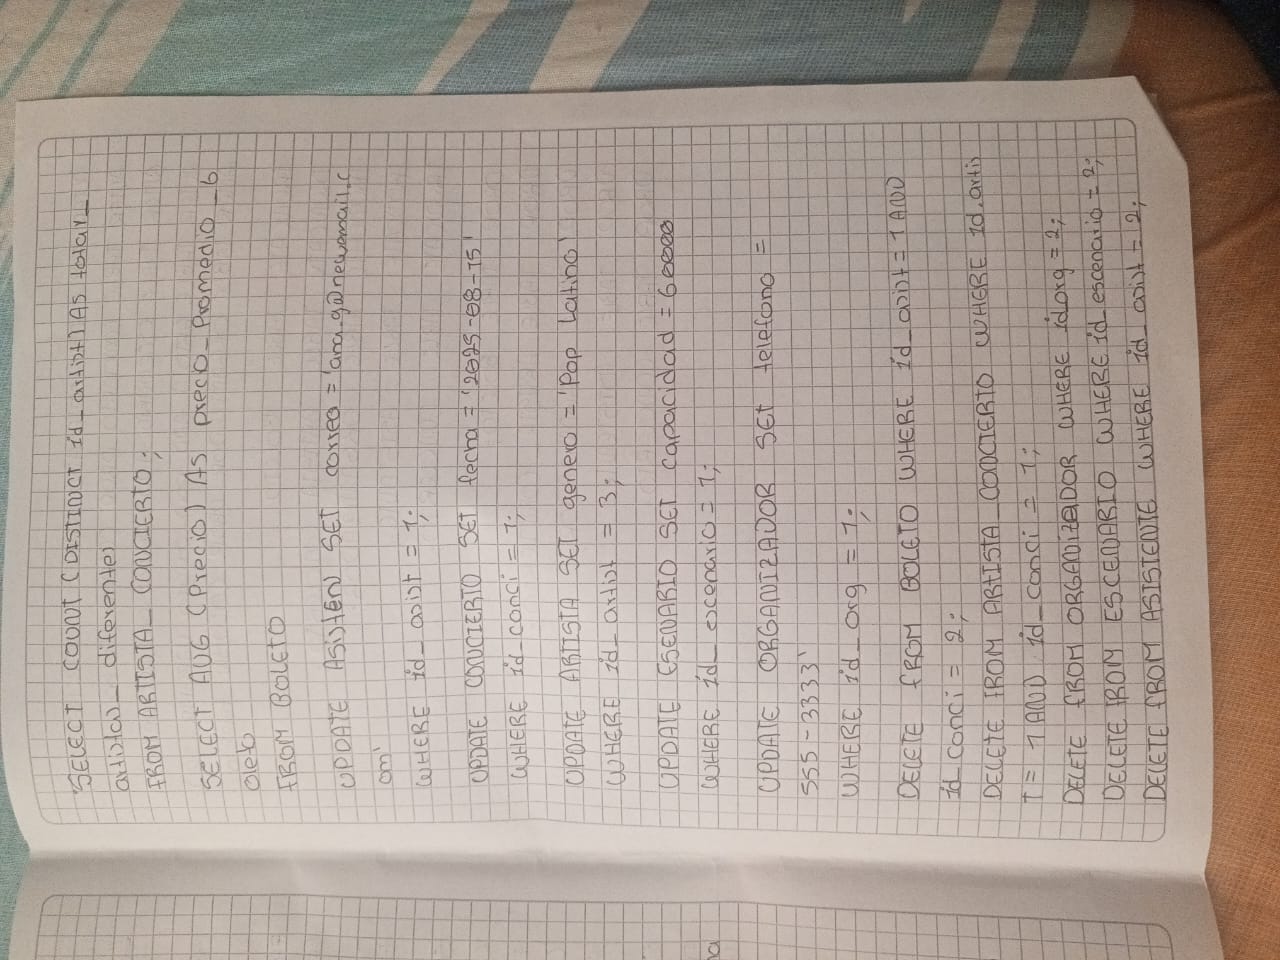 SELECT COUNT (DISTINCT id_artist) AS total_
artistas_diferentes
FROM ARTISTA_CONCIERTO;
SELECT AVG (Precio) AS preco_Promedio_b
oleto
FROM BOLETO
UPDATE ASISTEN SET correo = 'ana.g@newemail.c
om'
WHERE id_asist = 1;
UPDATE CONCIERTO SET fecha = '2025-08-15'
WHERE id_conci = 1;
UPDATE ARTISTA SET genero = 'Pop Latino'
WHERE id_artist = 3;
UPDATE ESENARIO SET capacidad = 60000
WHERE id_escenario = 1;
UPDATE ORGANIZADOR SET telefono =
555-3333'
WHERE id_org = 1;
DELETE FROM BOLETO WHERE id_asist = 1 AND
id_conci = 2;
DELETE FROM ARTISTA_CONCIERTO WHERE id_artis
t = 1 AND id_conci = 1;
DELETE FROM ORGANIZADOR WHERE id_org = 2;
DELETE FROM ESCENARIO WHERE id_escenario = 2;
DELETE FROM ASISTENTE WHERE id_asist = 2;